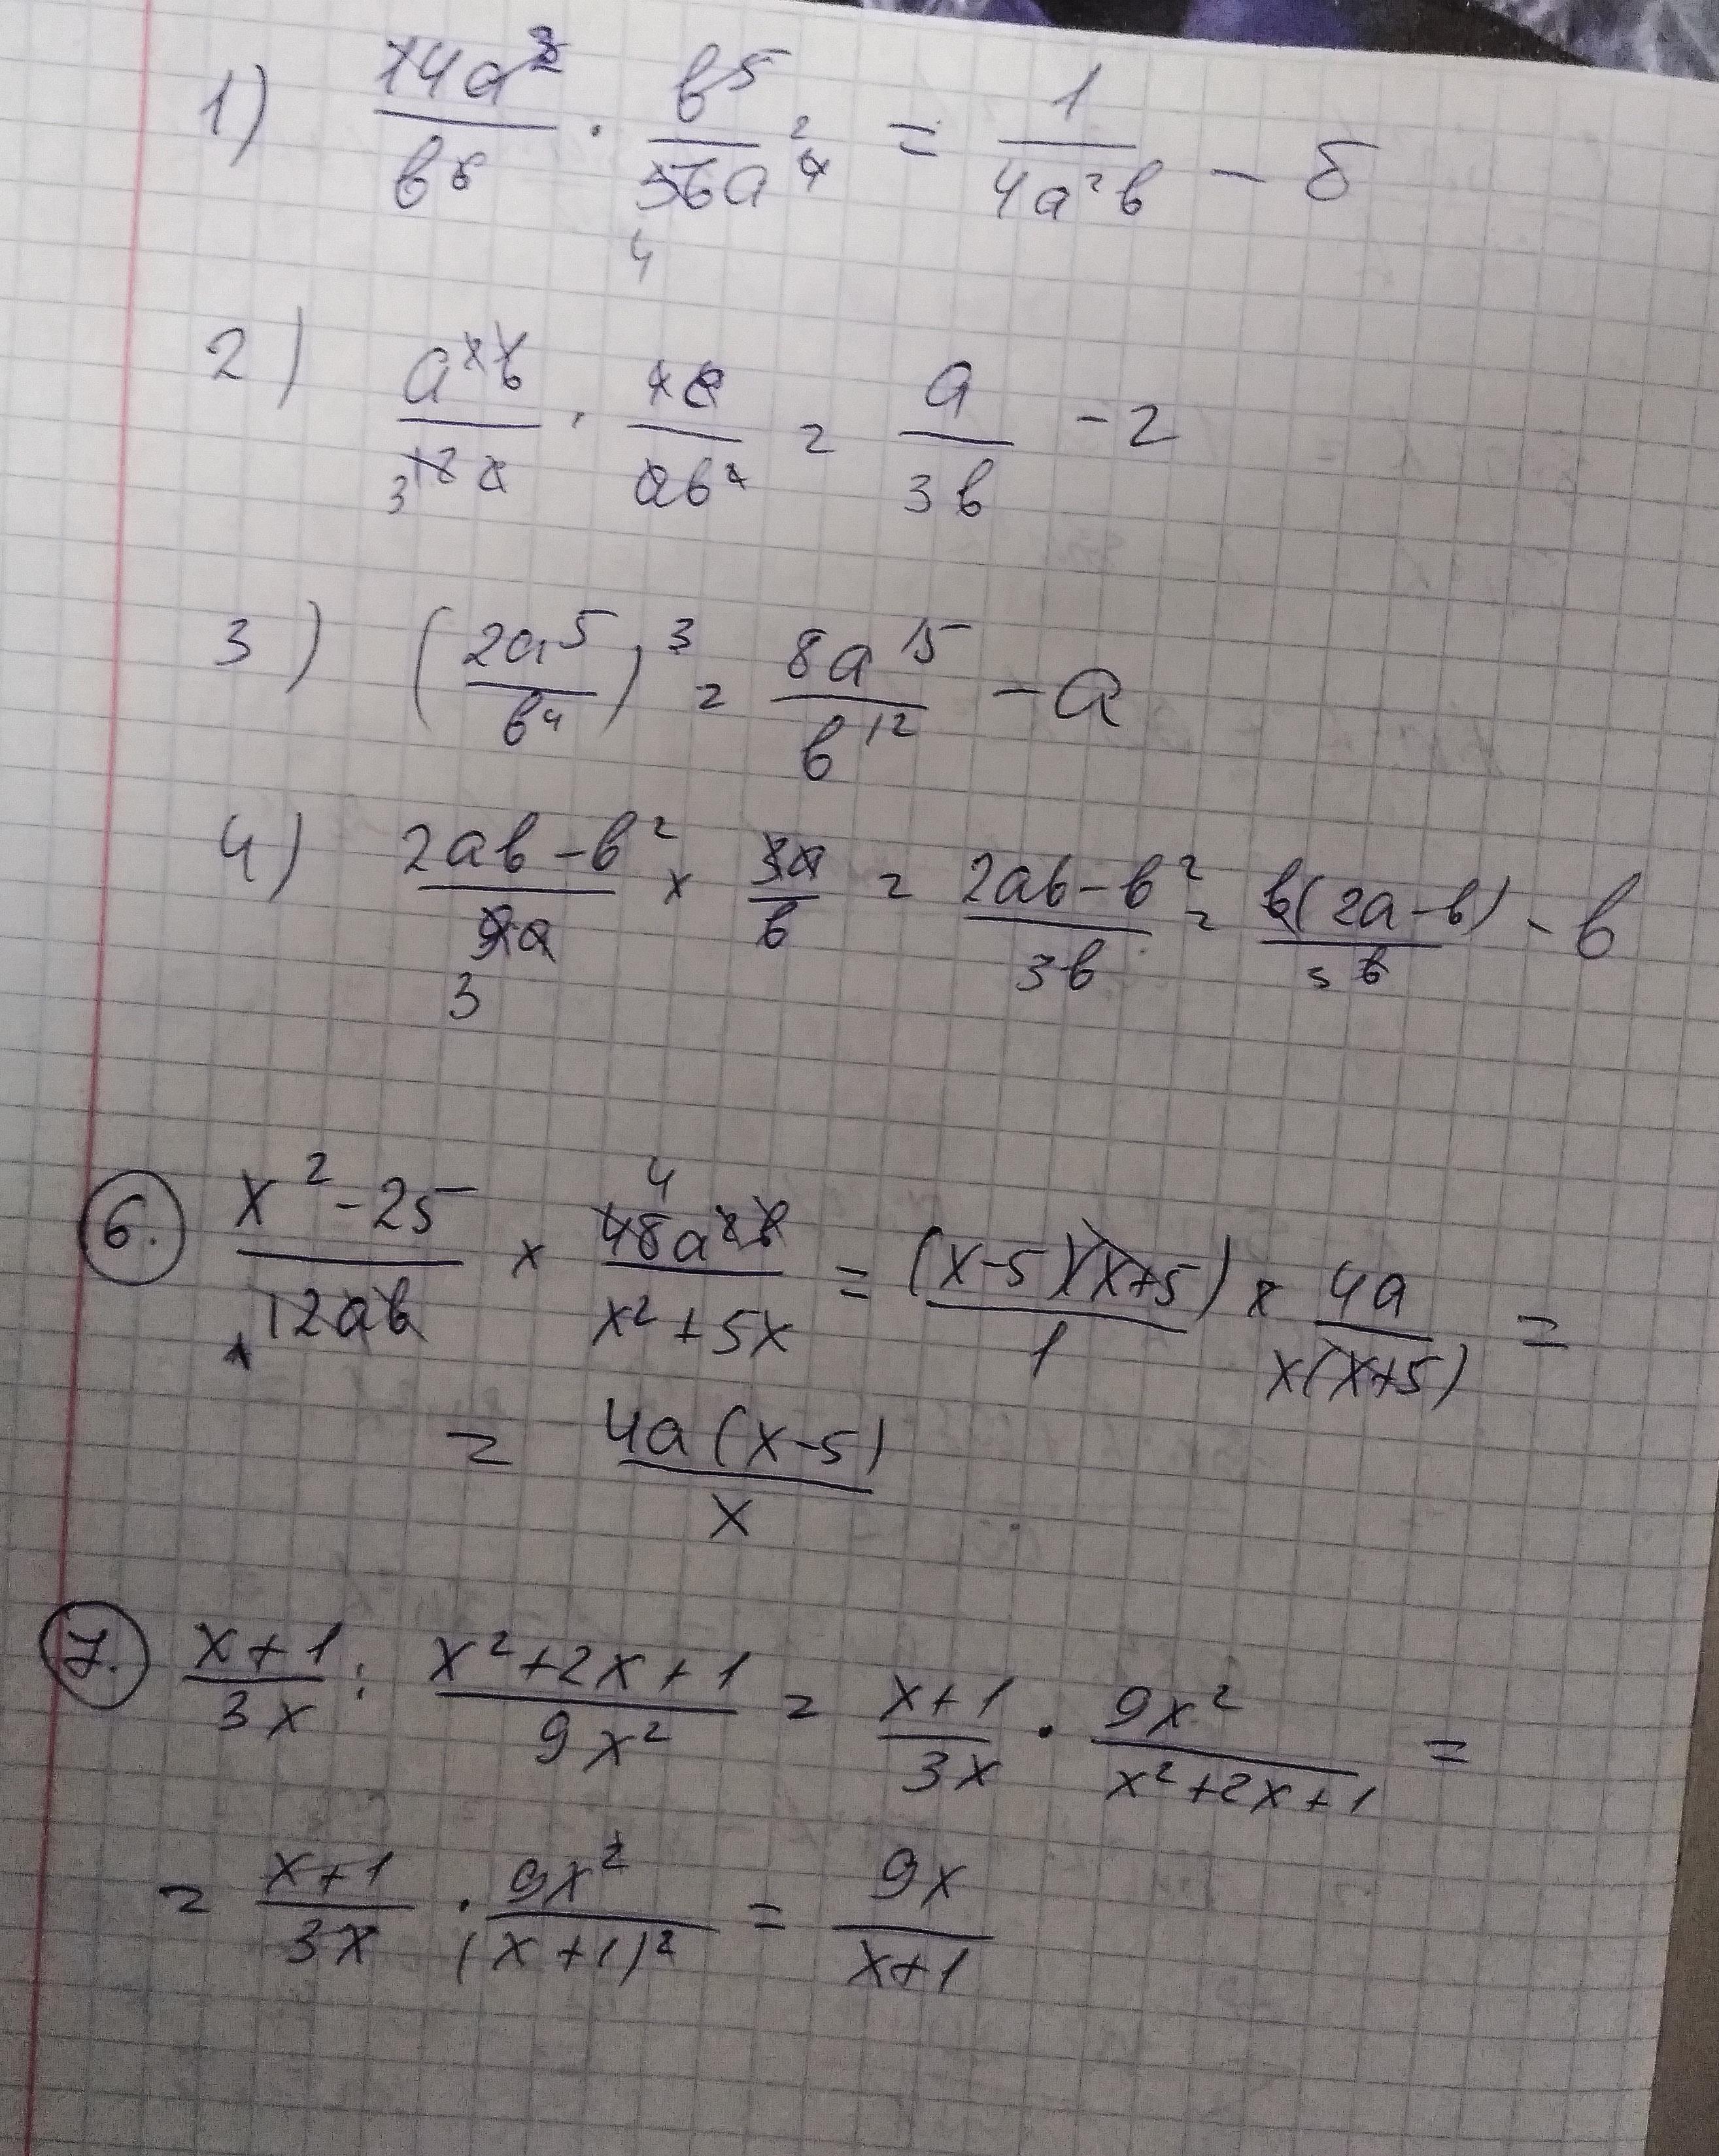 1) 14a²/в⁶ · в⁵/56a⁴ = 1/4a²в – б
4
2) a²в/12x · 4x/aв² = a/3в – г
3
3) (2a⁵/в⁴)³ = 8a¹⁵/в¹² – а
4) 2aв – в²/9a × 3a/в = 2aв – в²/3в = в(2a – в)/3в – в
3
6. x² – 25/12aв × 48a²в/x² + 5x = (x–5)(x+5)/1 × 4a/x(x+5) =
= 4a(x–5)/x
7. x+1/3x : x²+2x+1/9x² = x+1/3x · 9x²/x²+2x+1 =
= x+1/3x · 9x²/(x+1)² = 9x/x+1